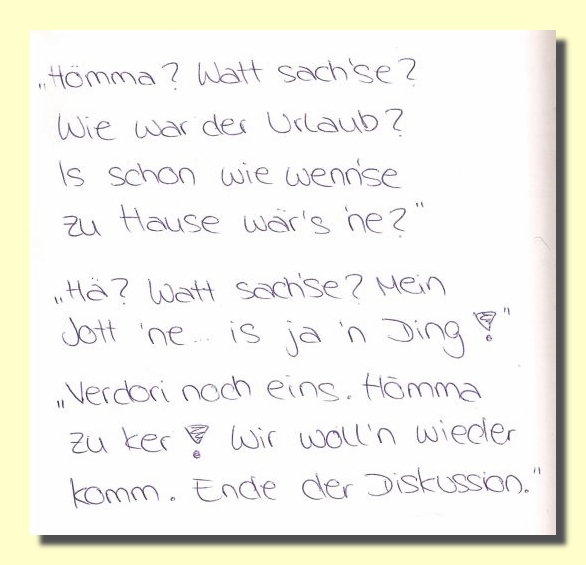 „Hömma? Watt sach'se?
Wie war der Urlaub?
Is schon wie wenn'se
zu Hause wär's 'ne?"
„Hä? Watt sach'se? Mein
Jott 'ne... is ja 'n Ding!"
„Verdori noch eins. Hömma
zu ker! Wir woll'n wieder
komm. Ende der Diskussion."